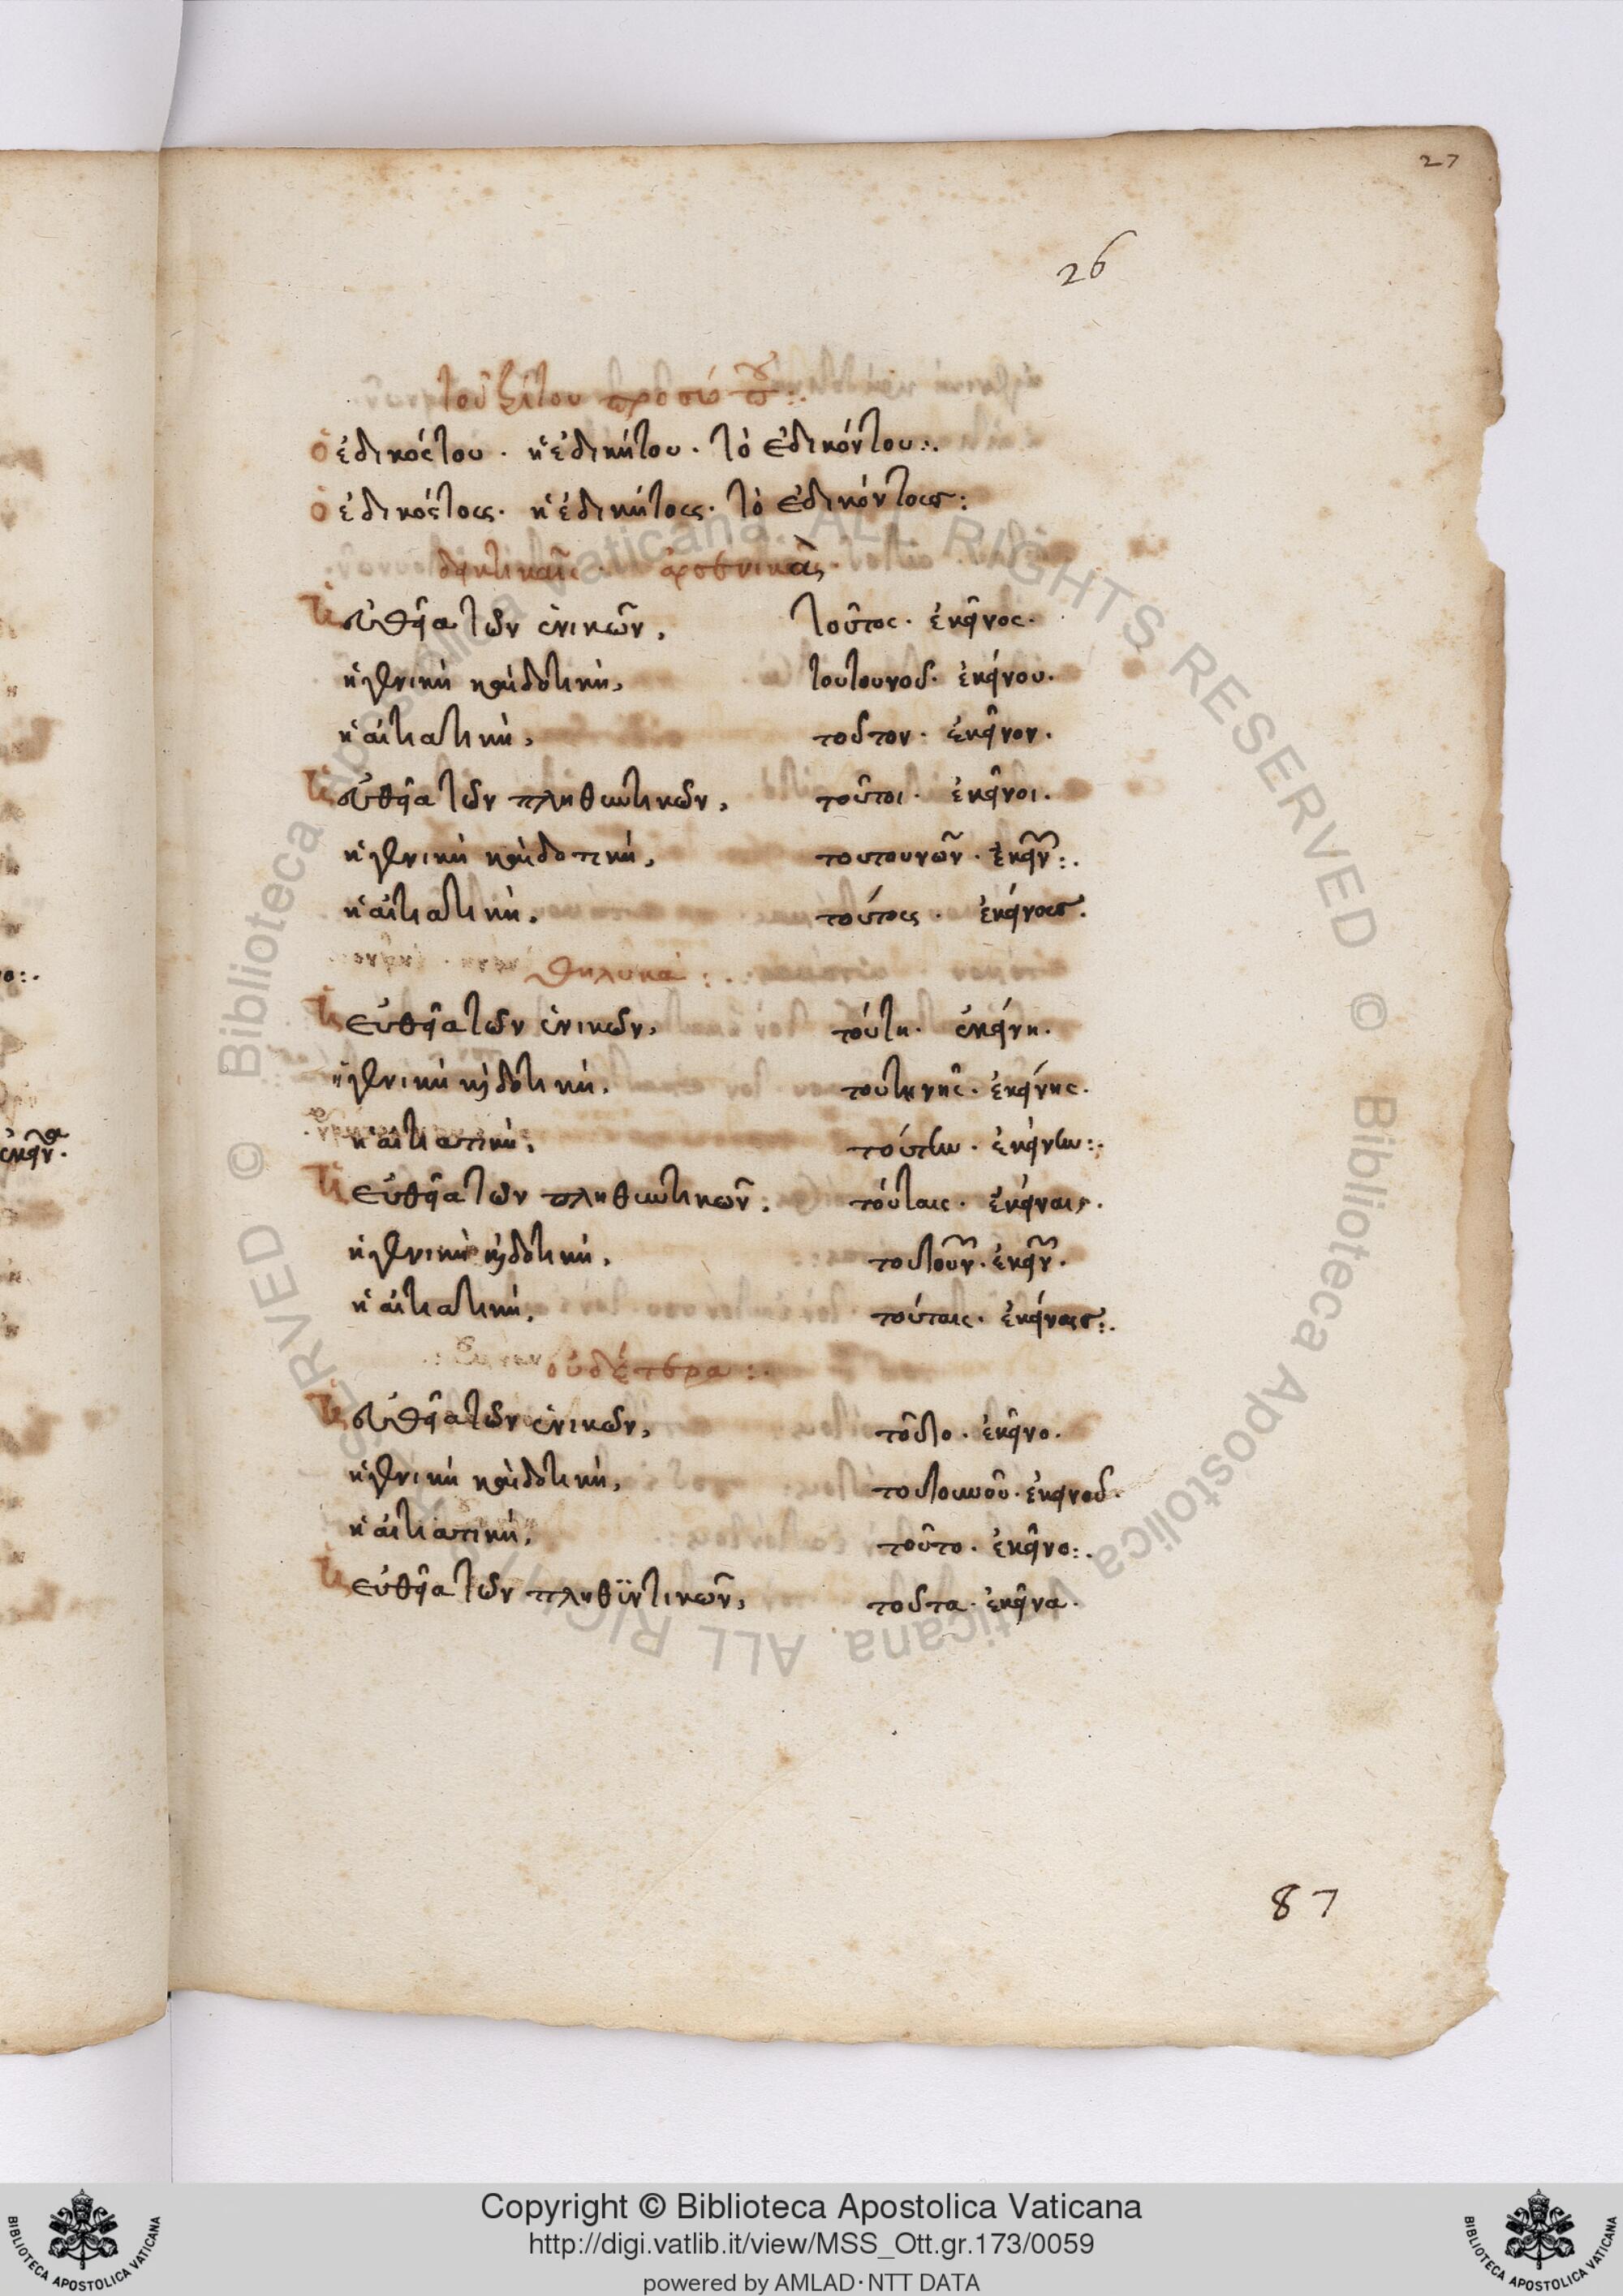 27
26
τοῦ τρίτου προσώπου:.
ὁ ἐδικόςτου · ἡ ἐδικήτου · τὸ ἐδικόντου:.
ὁ ἐδικόςτους · ἡ ἐδικήτους · τὸ ἐδικόντους:
δεικτικαῖς · ἀρσενικὰς
ἡ εὐθεῖα τῶν ἑνικῶν, τοῦτος · ἐκεῖνος ·
ἡ γενικὴ καὶ δοτικὴ, τουτουνοῦ · ἐκείνου ·
ἡ αἰτιατικὴ, τοῦτον · ἐκεῖνον ·
ἡ εὐθεῖα τῶν πληθυντικῶν, τοῦτοι · ἐκεῖνοι ·
ἡ γενικὴ καὶ δοτικὴ, τουτουνῶν · ἐκείνων:.
ἡ αἰτιατικὴ, τούτους · ἐκείνους ·
θηλυκά:.
ἡ εὐθεῖα τῶν ἑνικῶν, τούτη · ἐκείνη ·
ἡ γενικὴ καὶ δοτικὴ, τουτηνῆς · ἐκείνης ·
ἡ αἰτιατικὴ, τούτην · ἐκείνην:.
ἡ εὐθεῖα τῶν πληθυντικῶν, τούταις · ἐκείναις ·
ἡ γενικὴ καὶ δοτικὴ, τουτουνῶν · ἐκείνων ·
ἡ αἰτιατικὴ, τούταις · ἐκείναις:.
οὐδέτερα:.
ἡ εὐθεῖα τῶν ἑνικῶν, τοῦτο · ἐκεῖνο ·
ἡ γενικὴ καὶ δοτικὴ, τουτουνοῦ · ἐκεινοῦ ·
ἡ αἰτιατικὴ, τοῦτο · ἐκεῖνο:.
ἡ εὐθεῖα τῶν πληθϋντικῶν, τοῦτα · ἐκεῖνα ·
87
© Biblioteca Apostolica Vaticana. ALL RIGHTS RESERVED © Biblioteca Apostolica Vaticana. ALL RIGHTS RESERVED
Copyright © Biblioteca Apostolica Vaticana
http://digi.vatlib.it/view/MSS_Ott.gr.173/0059
powered by AMLAD·NTT DATA
BIBLIOTECA APOSTOLICA VATICANA
BIBLIOTECA APOSTOLICA VATICANA